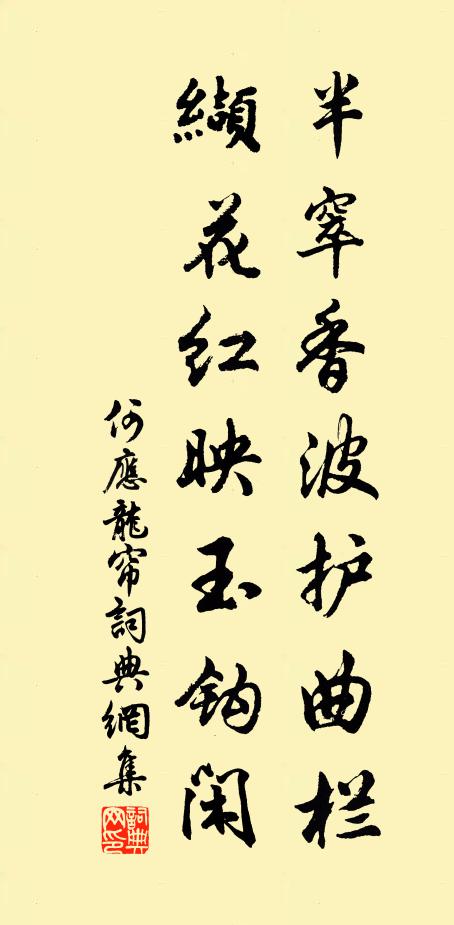 半窣香波护曲栏
纈花红映玉钩闲
何應龍帘詞典網集
詞典
网印